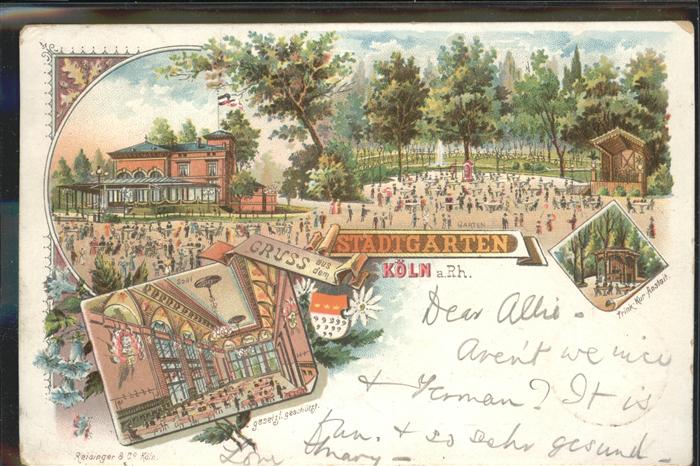 GARTEN
GRUSS aus dem
STADTGARTEN
KÖLN a.Rh.
Trink-Kur Anstalt.
Saal
gesetzl. geschützt.
Reisinger & Co Köln.
Dear Allie -
Aren't we nice
& German? It is
fun. & so sehr gesund -
Love Mary -